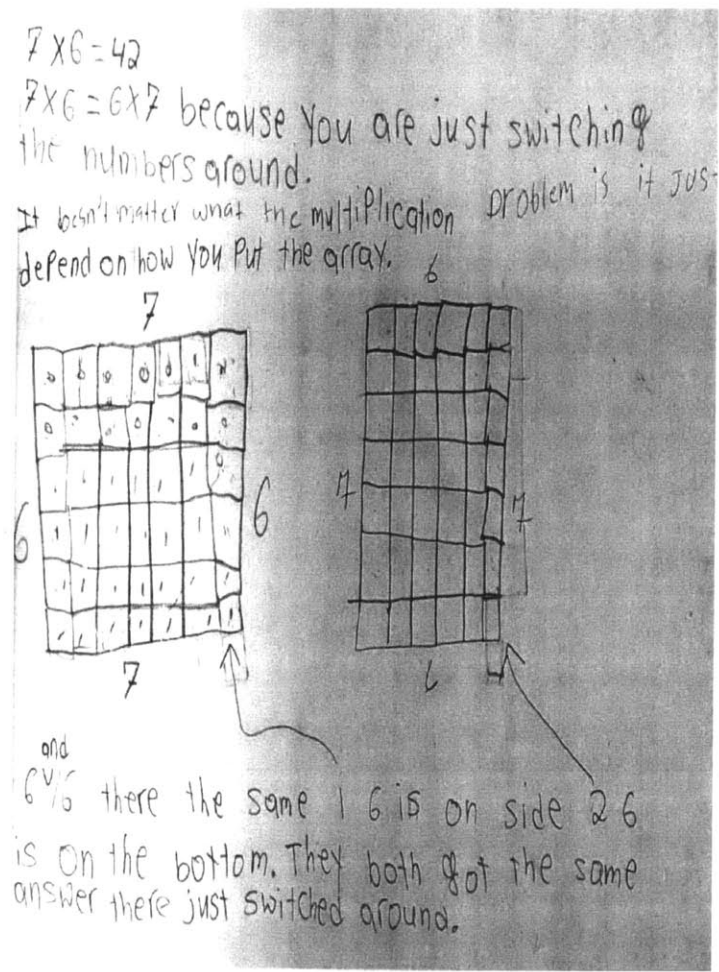 7X6=42
7X6=6X7 because You are just switching
the numbers around.
It doesn't matter what the multiplication problem is it jus
depend on how you Put the array.
7
6
6
6
7
7
7
6
and
6 v 6 there the same 1 6 is on side 2 6
is on the bottom. They both got the same
answer there just switched around.